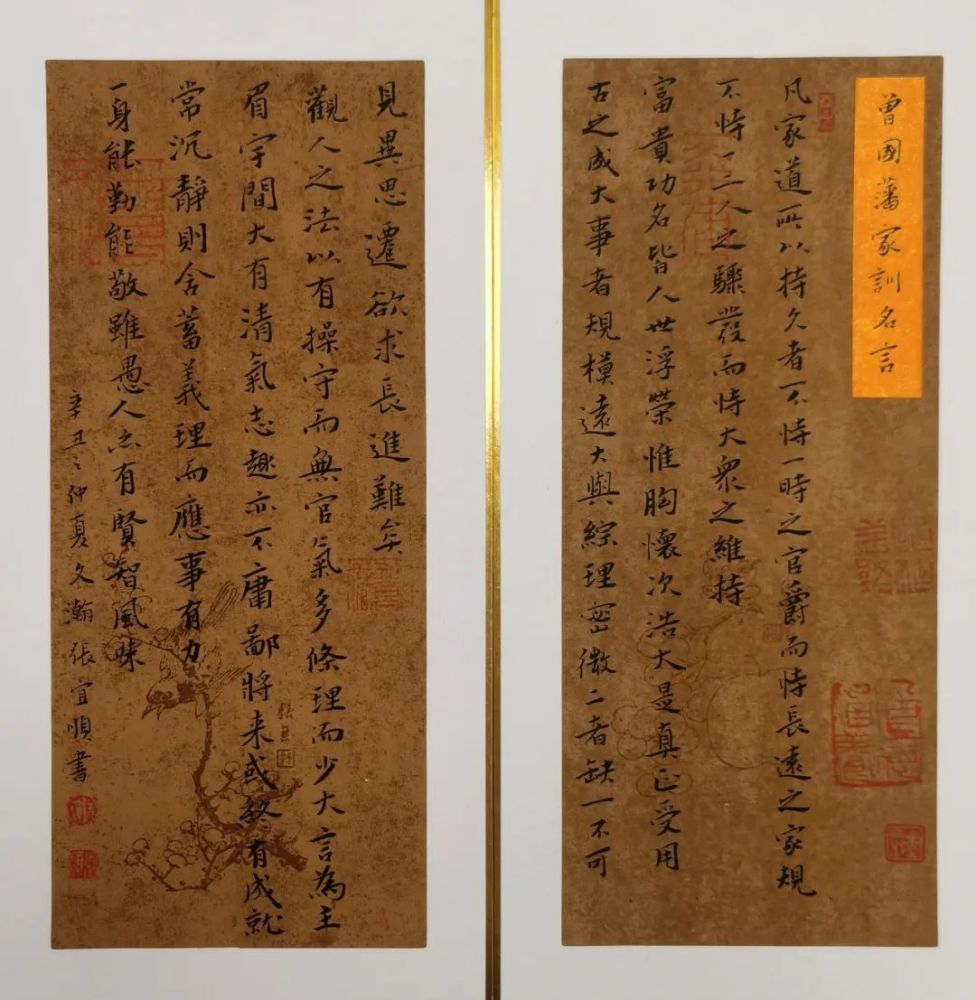 曾國藩家訓名言
凡家道所以持久者不恃一時之官爵而恃長遠之家規
不恃一二人之驟發而恃大衆之維持
富貴功名皆人世浮榮惟胸懷次浩大是真正受用
古之成大事者規模遠大與綜理密微二者缺一不可
見異思遷欲求長進難矣
觀人之法以有操守而無官氣多條理而少大言為主
眉宇間大有清氣志趣亦不庸鄙將来或終有成就
常沉靜則含蓄義理而應事有力
一身能勤能敬雖愚人亦有賢智風味
辛丑之仲夏文瀚張宜順書